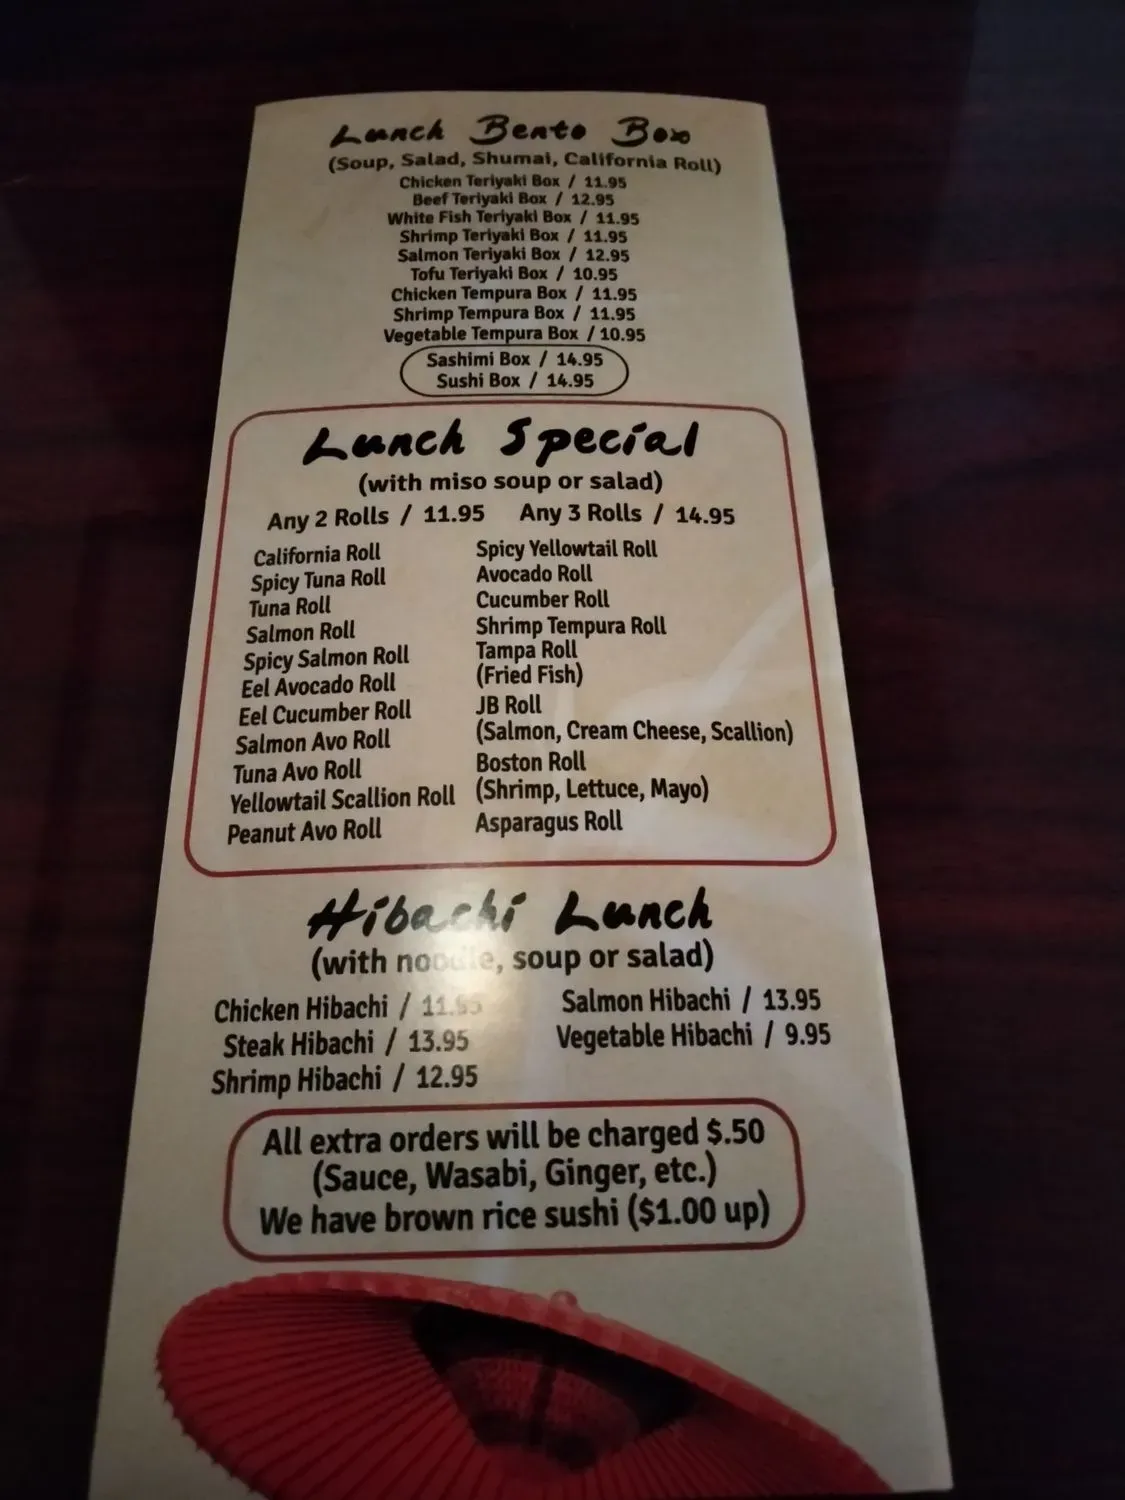 Lunch Bento Box
(Soup, Salad, Shumai, California Roll)
Chicken Teriyaki Box / 11.95
Beef Teriyaki Box / 12.95
White Fish Teriyaki Box / 11.95
Shrimp Teriyaki Box / 11.95
Salmon Teriyaki Box / 12.95
Tofu Teriyaki Box / 10.95
Chicken Tempura Box / 11.95
Shrimp Tempura Box / 11.95
Vegetable Tempura Box / 10.95
Sashimi Box / 14.95
Sushi Box / 14.95
Lunch Special
(with miso soup or salad)
Any 2 Rolls / 11.95 Any 3 Rolls / 14.95
California Roll
Spicy Tuna Roll
Tuna Roll
Salmon Roll
Spicy Salmon Roll
Eel Avocado Roll
Eel Cucumber Roll
Salmon Avo Roll
Tuna Avo Roll
Yellowtail Scallion Roll
Peanut Avo Roll
Spicy Yellowtail Roll
Avocado Roll
Cucumber Roll
Shrimp Tempura Roll
Tampa Roll
(Fried Fish)
JB Roll
(Salmon, Cream Cheese, Scallion)
Boston Roll
(Shrimp, Lettuce, Mayo)
Asparagus Roll
Hibachi Lunch
(with noodle, soup or salad)
Chicken Hibachi / 11.95
Steak Hibachi / 13.95
Shrimp Hibachi / 12.95
Salmon Hibachi / 13.95
Vegetable Hibachi / 9.95
All extra orders will be charged $.50
(Sauce, Wasabi, Ginger, etc.)
We have brown rice sushi ($1.00 up)